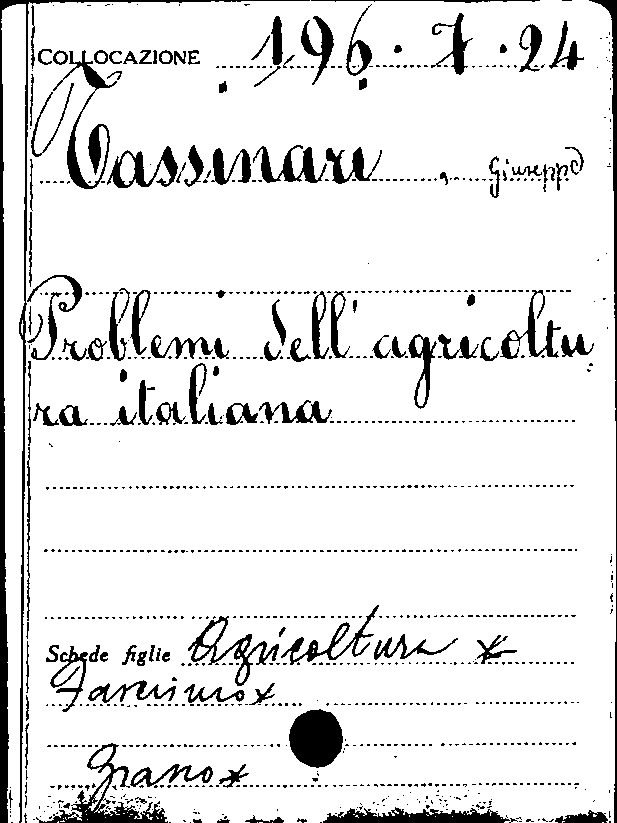 COLLOCAZIONE 196.7.24
Tassinari, Giuseppe
Problemi dell'agricoltu
ra italiana
Schede figlie Agricoltura x
Fascismo x
Grano x